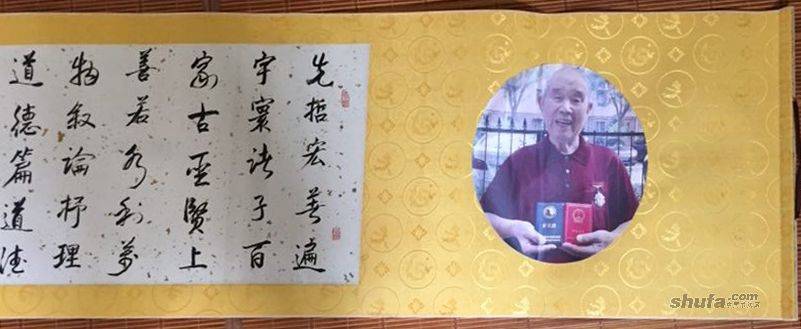 先哲宏善遍
宇寰诸子百
家古圣贤上
善若水利万
物叙论抒理
道德篇道德
shufa.com